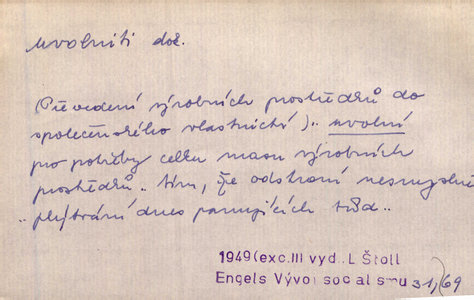 uvolniti doč.
(Převedení výrobních prostředků do
společenského vlastnictví).. uvolní
pro potřeby celku masu výrobních
prostředků.. tím, že odstraní nesmyslné
.. plýtvání dnes panujících tříd..
1949(exc.III vyd. L Štoll
Engels Vývoj socialismu 31,/69